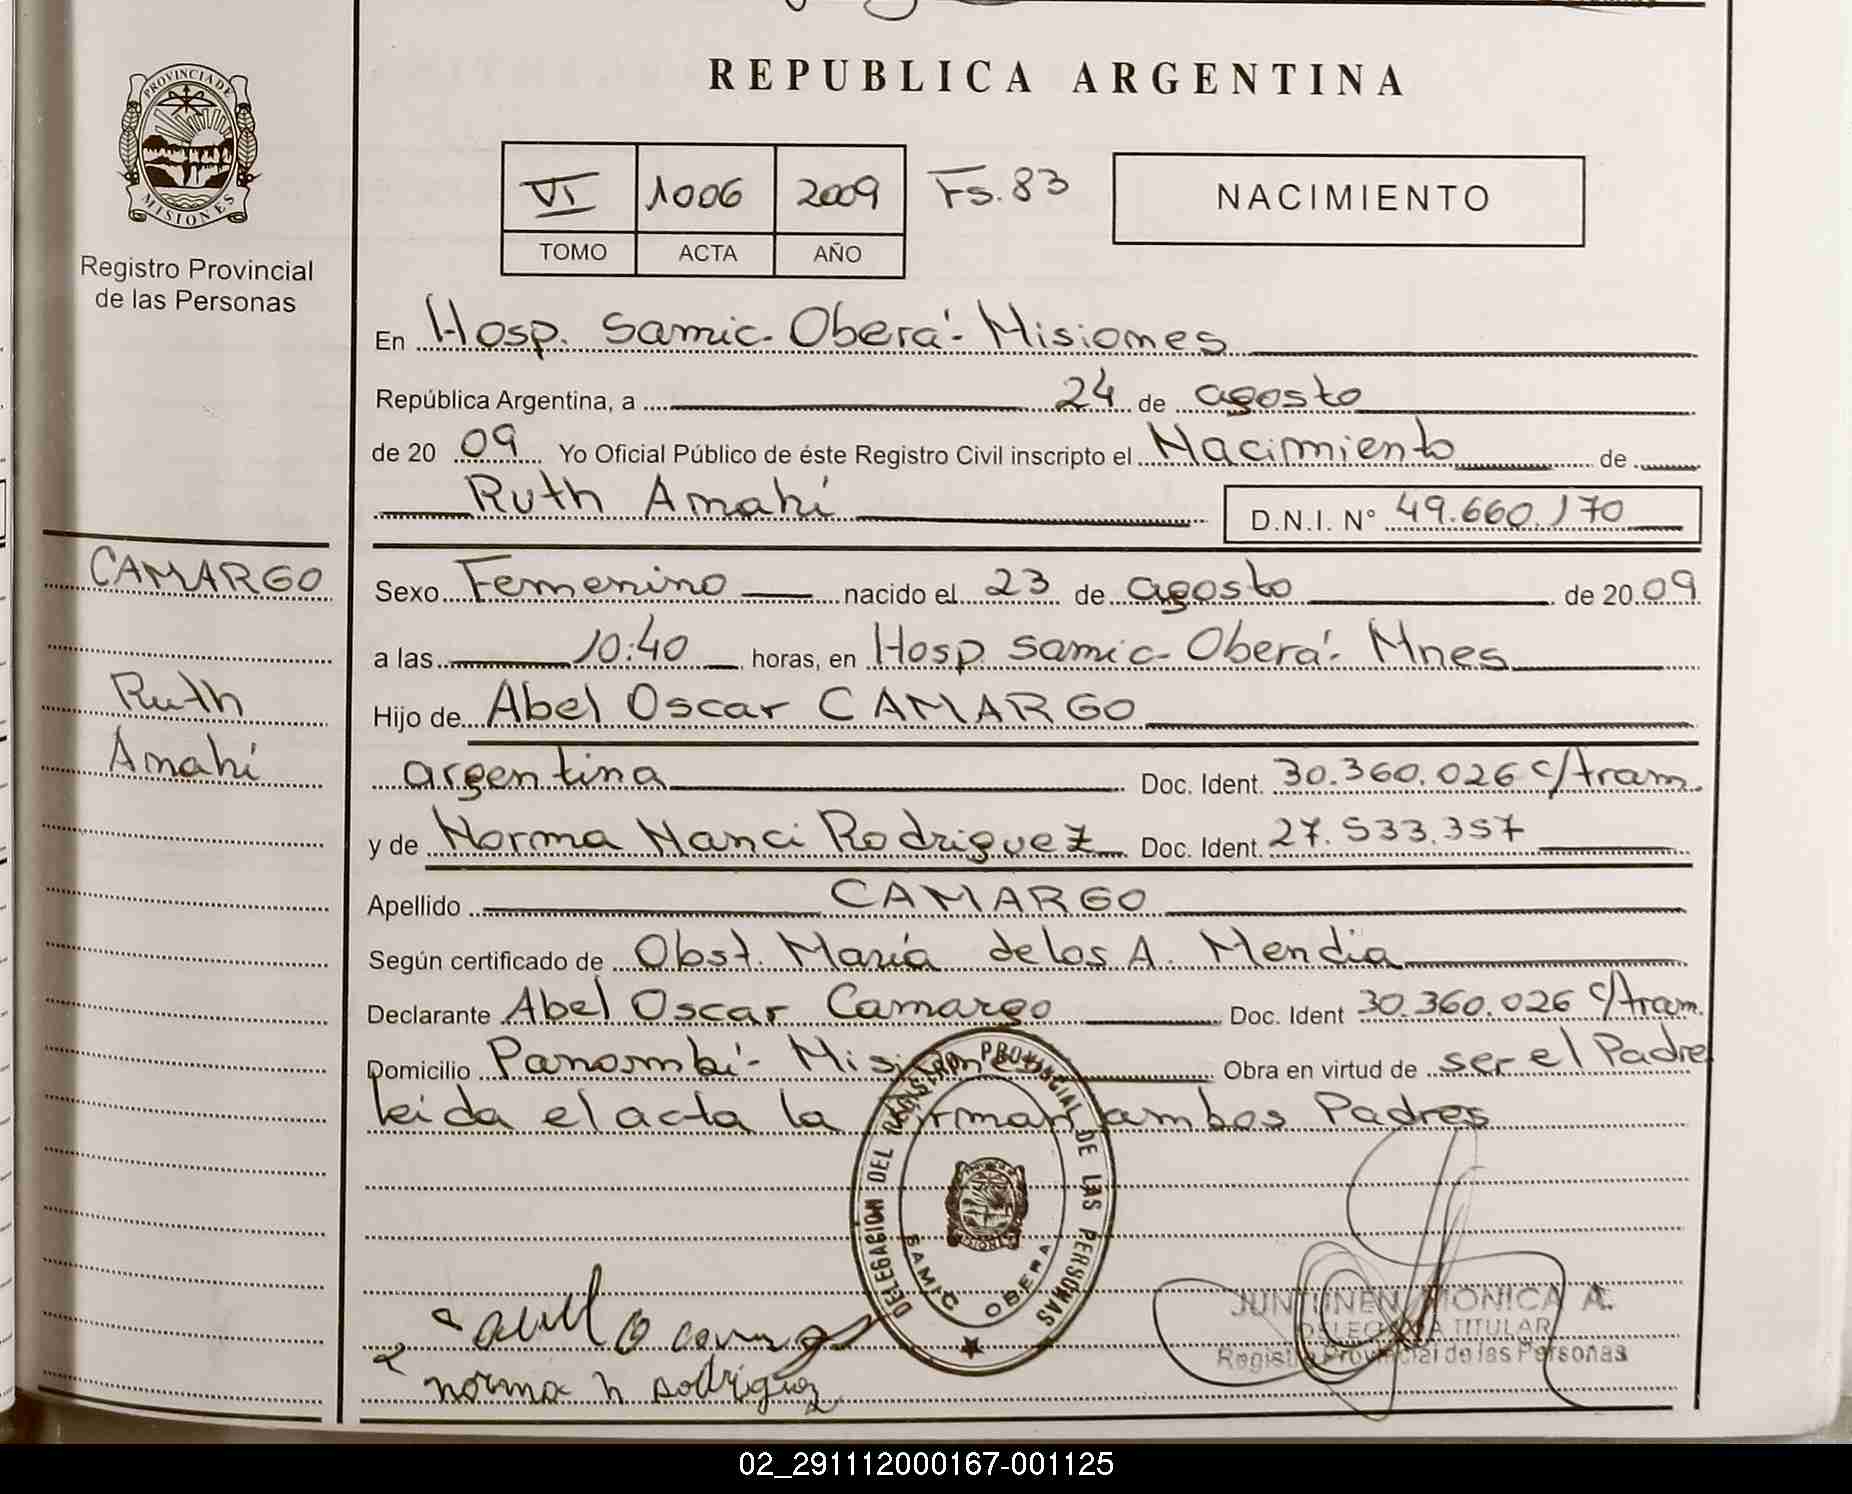 REPUBLICA ARGENTINA
PROVINCIA DE MISIONES
Registro Provincial
de las Personas
VI 1006 2009 Fs. 83
TOMO ACTA AÑO
NACIMIENTO
En Hosp. Samic - Oberá - Misiones
República Argentina, a 24 de agosto
de 20 09 Yo Oficial Público de éste Registro Civil inscripto el Nacimiento de
Ruth Anahí D.N.I. N° 49.660.170
CAMARGO
Ruth
Anahí
Sexo Femenino nacido el 23 de agosto de 20 09
a las 10:40 horas, en Hosp Samic - Oberá - Mnes
Hijo de Abel Oscar CAMARGO
argentina Doc. Ident. 30.360.026 c/tram.
y de Norma Nanci Rodriguez Doc. Ident. 27.533.357
Apellido CAMARGO
Según certificado de Obst. María de los A. Mendia
Declarante Abel Oscar Camargo Doc. Ident 30.360.026 c/tram.
Domicilio Panambí - Misiones Obra en virtud de ser el Padre
leida el acta la firman ambos Padres
DELEGACIÓN DEL REGISTRO PROVINCIAL DE LAS PERSONAS
SAMIC OBERA
norma n rodriguez
JUNTUNEN MONICA A.
DELEGADA TITULAR
Registro Provincial de las Personas
02_291112000167-001125